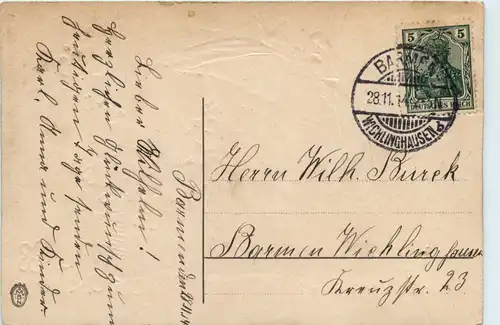 Barmen den 28.11.14
Lieber Wilhelm!
Herzlichen Glückwunsch zum
heutigen Tage senden
Karl, Anna und Kinder.
5 5
DEUTSCHES REICH
BARMEN
28.11.14
WICHLINGHAUSEN
Herrn Wilh. Burck
Barmen Wichlinghausen
Kreuzstr. 23